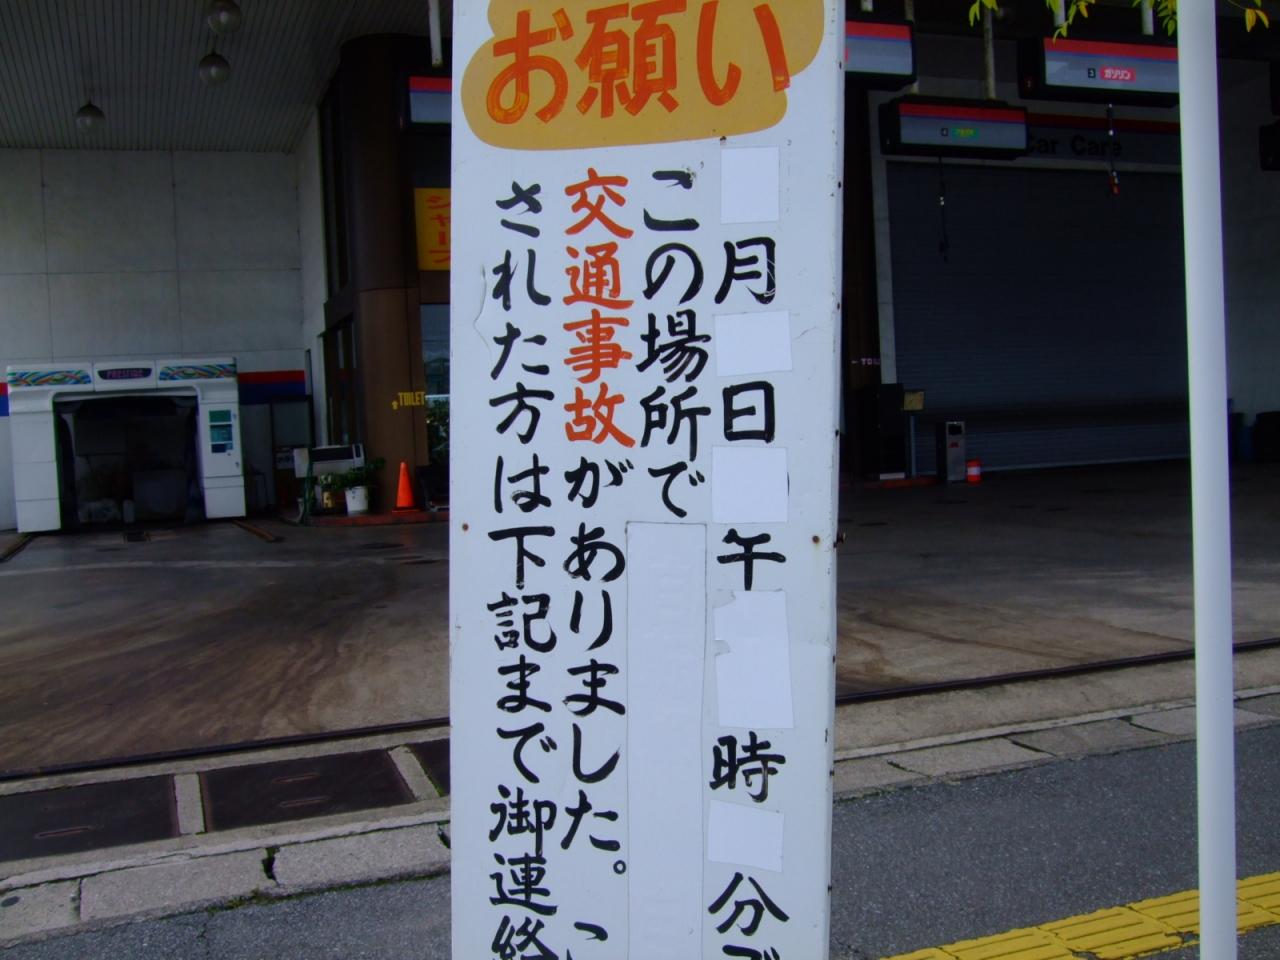 お願い
月 日 午 時 分
この場所で
交通事故がありました。
された方は下記まで御連絡
PRESTIGE
TOILET
3 ガソリン
4
Car Care